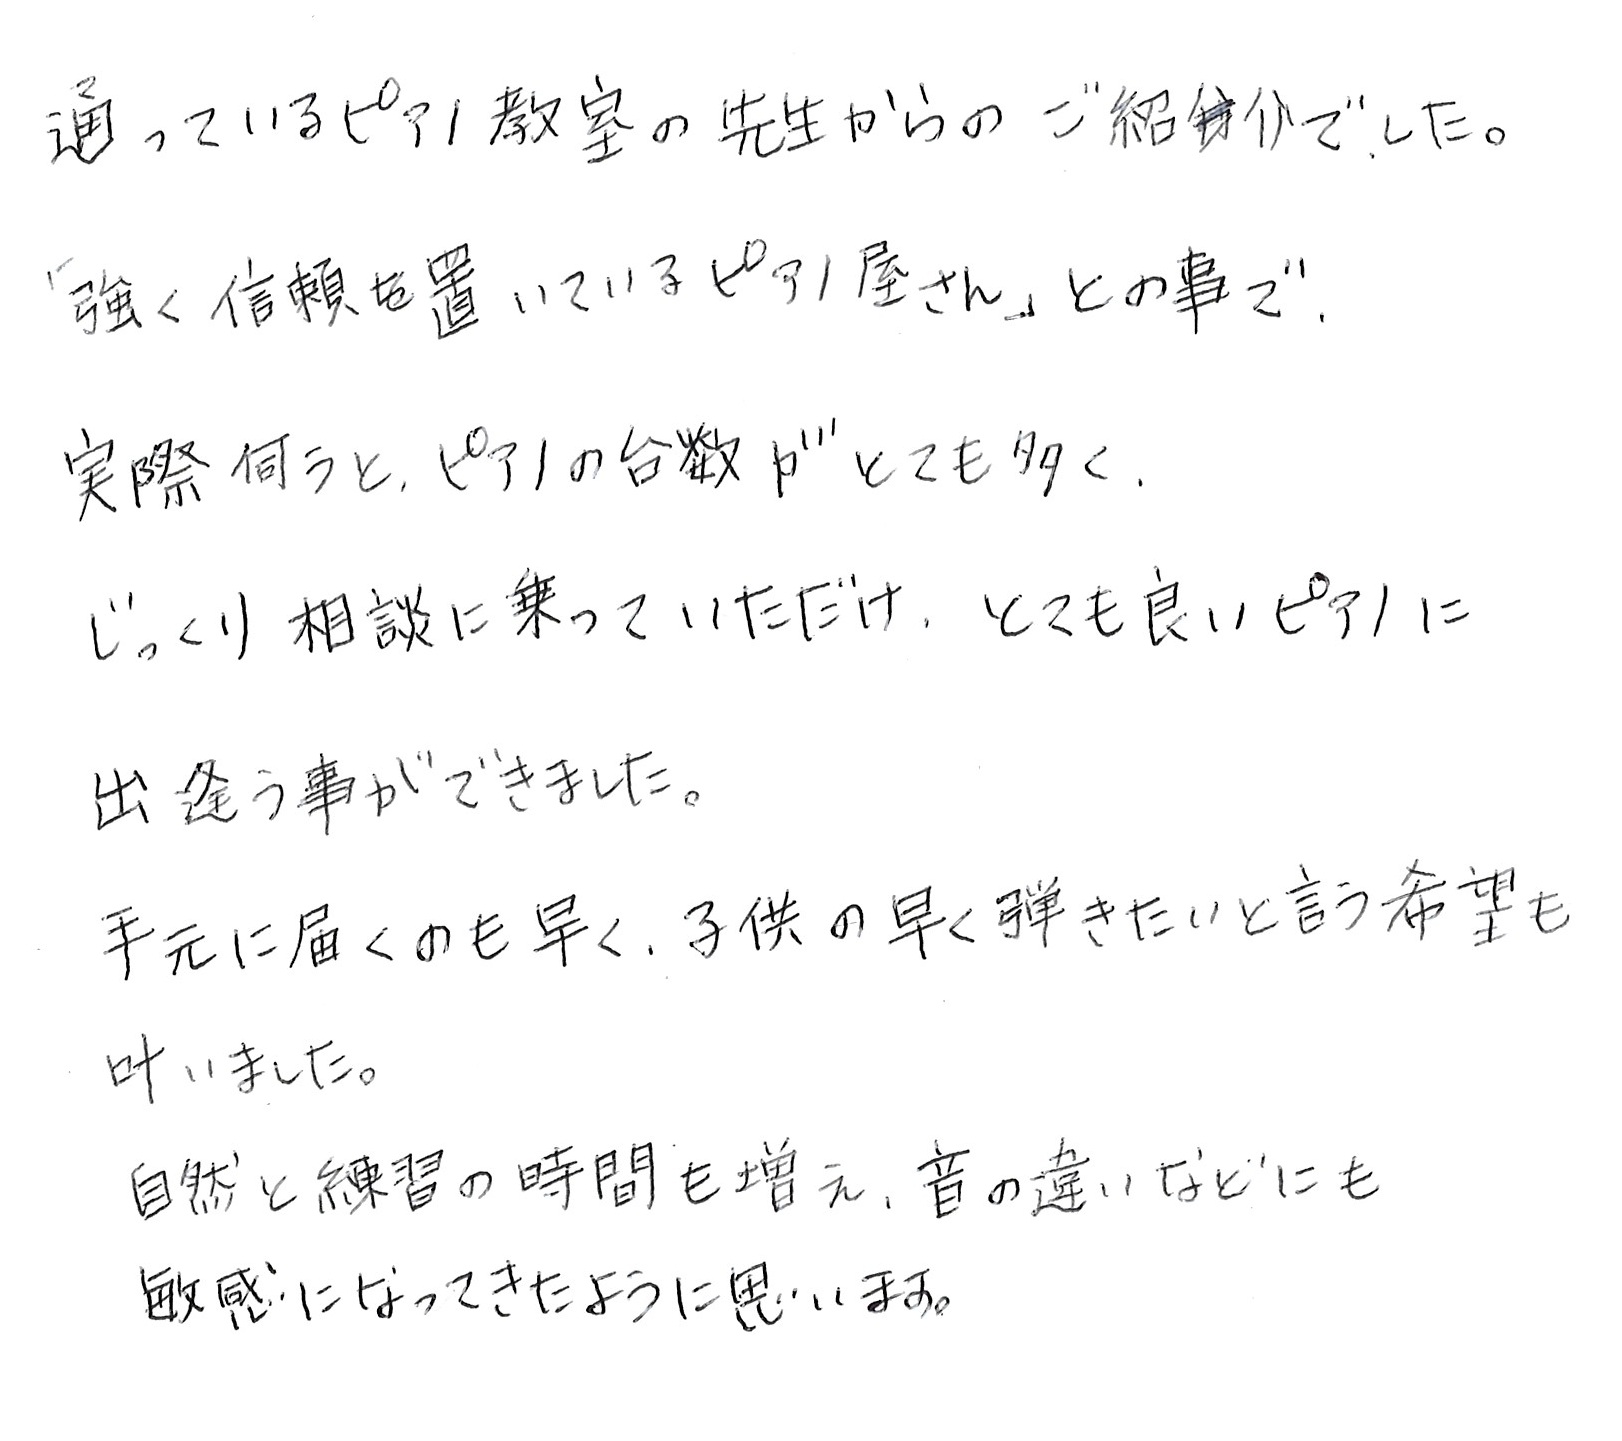 通っているピアノ教室の先生からのご紹介でした。
「強く信頼を置いているピアノ屋さん」との事で、
実際伺うと、ピアノの台数がとても多く、
じっくり相談に乗っていただけ、とても良いピアノに
出逢う事ができました。
手元に届くのも早く、子供の早く弾きたいと言う希望も
叶いました。
自然と練習の時間も増え、音の違いなどにも
敏感になってきたように思います。